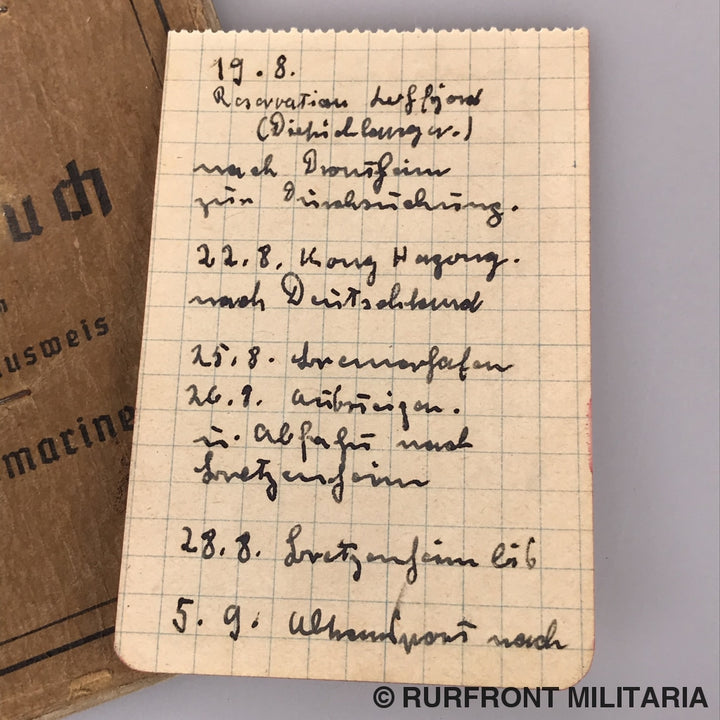 19.8.
Reservation Leffjord
(Dietsichlanger.)
nach Drontheim
zur Durchsuchung.
22.8. Kong Hagong.
nach Deutschland
25.8. Bremerhafen
26.8. aubsteigen.
u. Abfahrt nach
Bretzenheim
28.8. Bretzenheim bis
5. 9. Abtransport nach
uch
n
usweis
marine
© RURFRONT MILITARIA